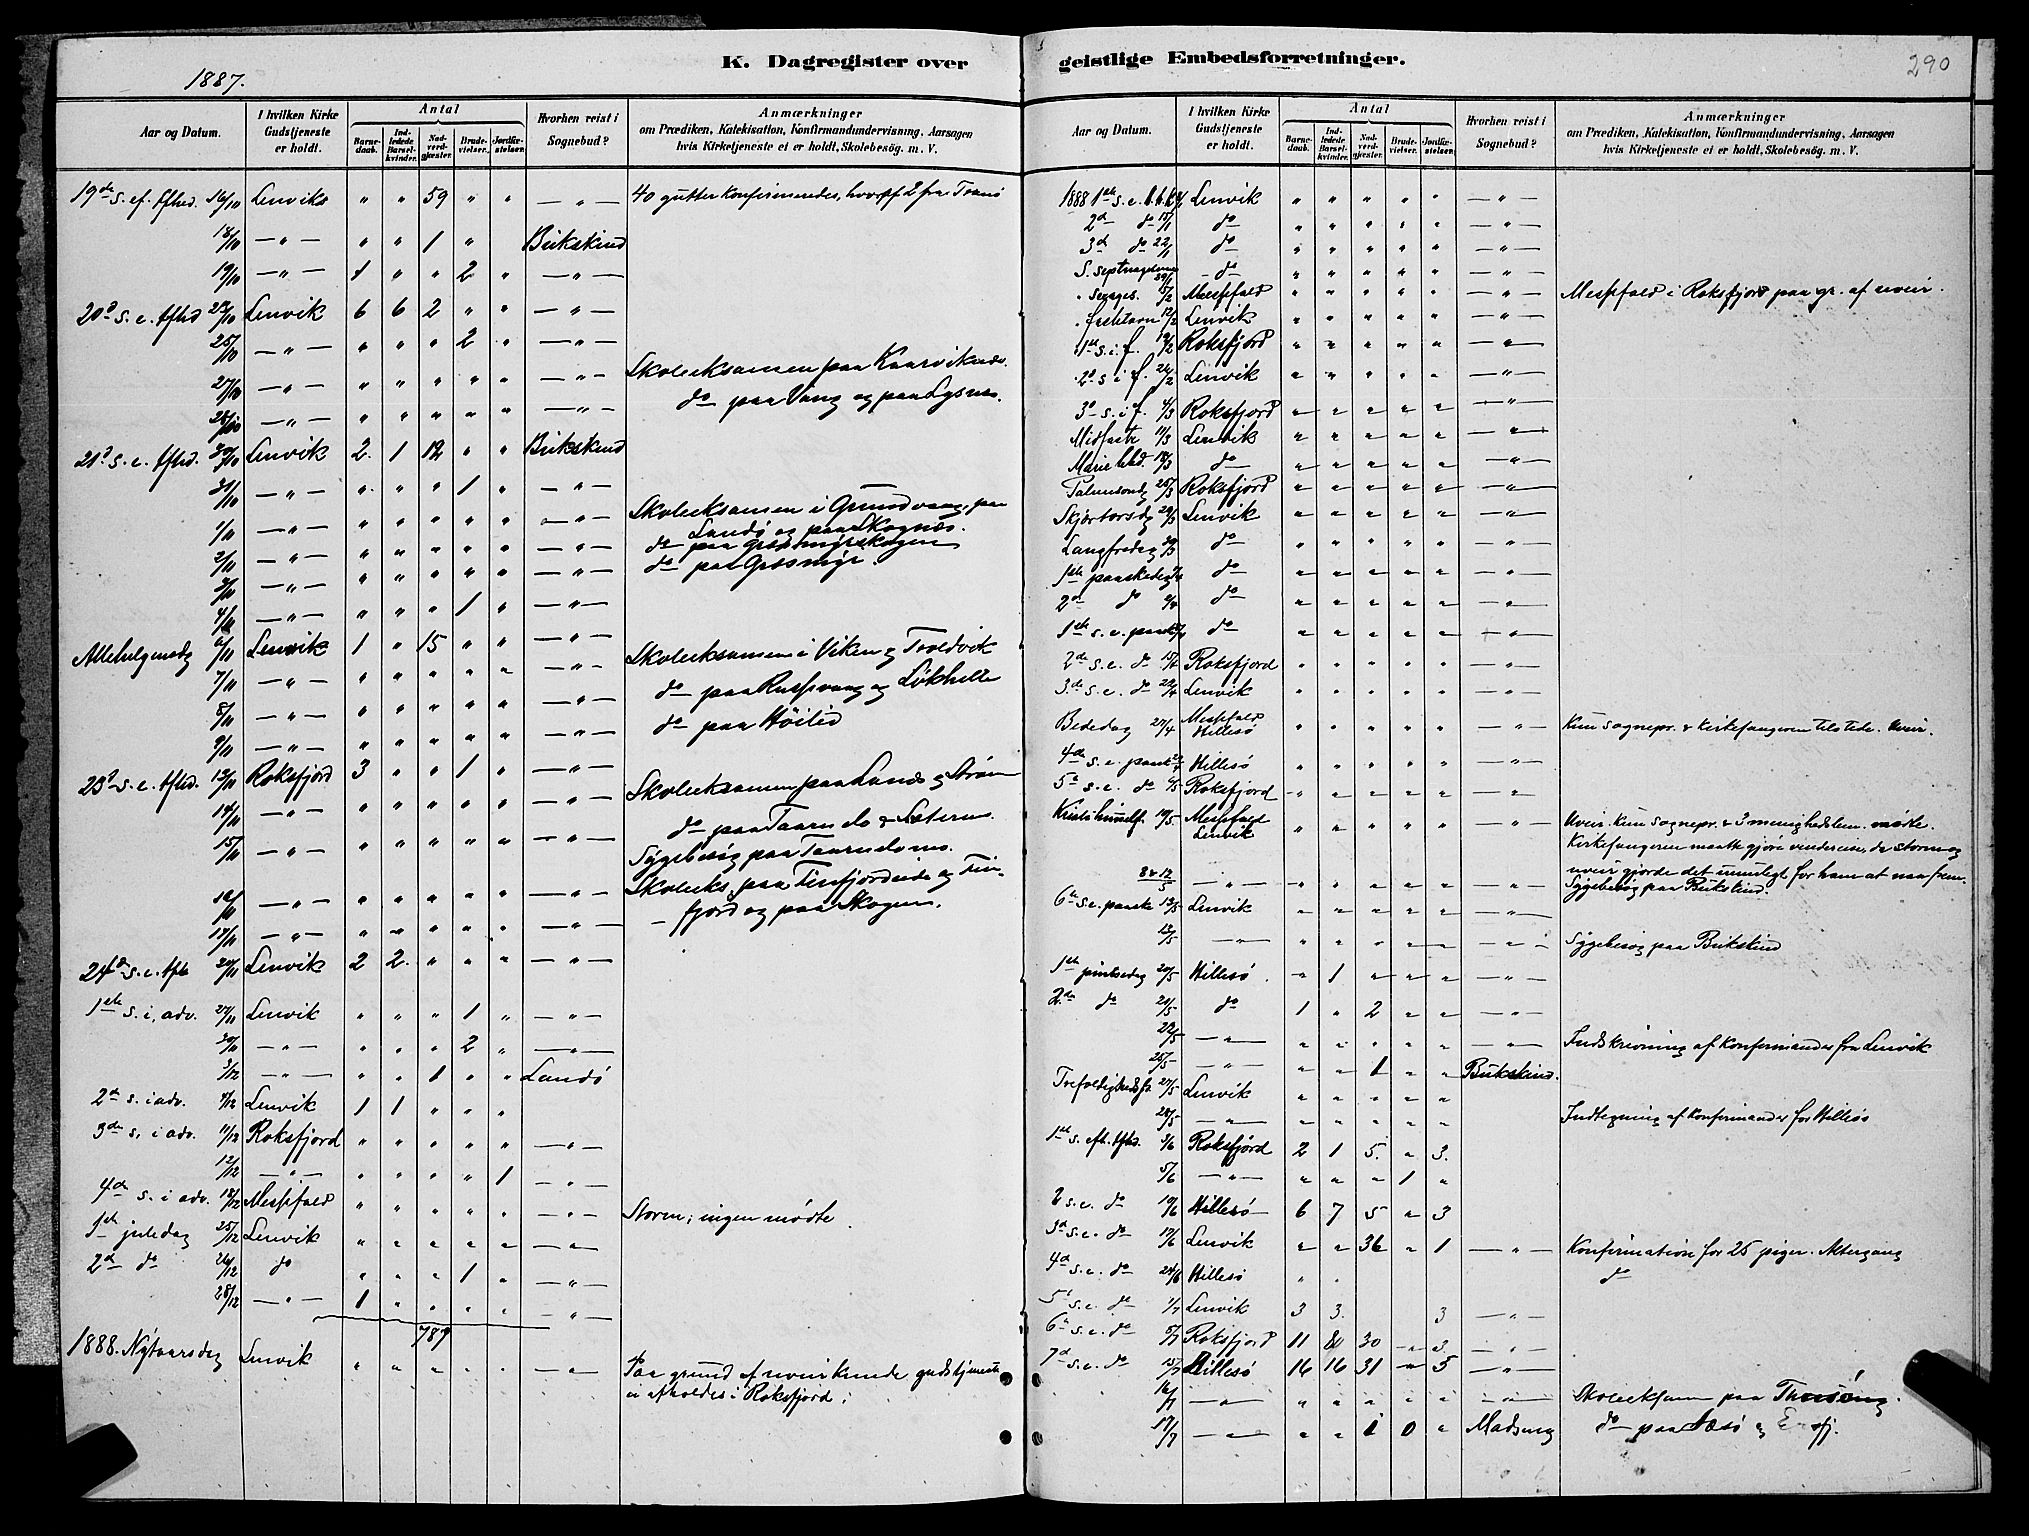 1887.
K. Dagregister over
Aar og Datum.
I hvilken Kirke Gudstjeneste er holdt.
Antal
Barnedaab.
Indledede Barselkvinder.
Nadverdgjester.
Brudevielser.
Jordfæstelser.
Hvorhen reist i Sognebud?
Anmærkninger
om Prædiken, Katekisation, Konfirmandundervisning, Aarsagen
hvis Kirketjeneste ei er holdt, Skolebesög. m. V.
19de s. ef. tfhed. 16/10 Lenviks " " 59 " " — " — 40 gutter konfirmeredes, hvoraf 2 fra Tranö
18/10 — " — " " 1 " Bukskind
19/10 — " — 1 " " 2 " — " —
20de s. e. tfhed 23/10 Lenvik 6 6 2 " " — " —
25/10 — " — " " " 2 " — " —
27/10 — " — " " " " " — " — Skoleeksamen paa Kaarviknæs.
28/10 — " — " " " " " — " — do paa Vang og paa Lysnes.
21de s. e. tfhed. 30/10 Lenvik 2. 1 12 " " Bukskind
31/10 — " — " " " 1 " — " —
1/11 — " — " " " " " — " — Skoleeksamen i Grundvaag, paa
Landö og paa Skognæs.
2/11 — " — " " " " " — " — do paa Græsmyrskogen
3/11 — " — " " " " " — " — do paa Græsmyr.
4/11 — " — " " " 1 " — " —
Allehelgensdg 6/11 Lenvik 1 " 15 " " — " —
7/11 — " — " " " " " — " — Skoleeksamen i Viken og Troldvik
8/11 — " — " " " " " — " — do paa Russevaag og Lökhelle
9/11 — " — " " " " " — " — do paa Höilid
23de s. e. tfhed. 13/11 Roksfjord 3 " " 1 " — " —
14/11 — " — " " " " " — " — Skoleeksamen paa Lanes og Ström
15/11 — " — " " " " " — " — do paa Taarnelv & Sæternes.
Sygebesög paa Taarnelvnes.
16/11 — " — " " " " " — " — Skoleeks. paa Finfjordeide og Fin-
17/11 — " — " " " " " — " — fjord og paa Skogen.
24de s. e. tfh 20/11 Lenvik 2 2. " " " — " —
1ste s. i. adv. 27/11 Lenvik " " " 1 " — " —
30/11 — " — " " " 2 " — " —
3/12 — " — " " 1 " " Landö
2de s. i adv. 4/12 Lenvik 1 1 " " "
3de s. i adv. 11/12 Roksfjord " " " " " — " —
12/12 — " — " " " " 1 — " —
4de s. i adv. 18/12 Mesfald " " " " " — " — Storm; ingen mödte.
1ste juledag 25/12 Lenvik " " " " " — " —
2de do 26/12 do " " " 1 " — " —
28/12 — " — 1 " " " " — " —
789
1888. Nytaarsdag Lenvik " " " " " — " — Paa grund af uveir kunde gudstjeneste
ei afholdes i Roksfjord.
geistlige Embedsforretninger.
290
Aar og Datum.
I hvilken Kirke Gudstjeneste er holdt.
Antal
Barnedaab.
Indledede Barselkvinder.
Nadverdgjester.
Brudevielser.
Jordfæstelser.
Hvorhen reist i Sognebud?
Anmærkninger
om Prædiken, Katekisation, Konfirmandundervisning, Aarsagen
hvis Kirketjeneste ei er holdt, Skolebesög. m. V.
1888 1ste s. e. h.3.k. 8/1 Lenvik " " " " " — " —
2de do 15/1 do " " " " " — " —
3de do 22/1 do " " " " " — " —
S. septuagesima 29/1 do " " " " " — " —
" sexages. 5/2 Mesfald " " " " " — " — Mesfald i Roksfjord paa gr. af uveir.
" fastelavn 12/2 Lenvik " " " " " — " —
1ste s. i f. 19/2 Roksfjord " " " " " — " —
2de s i f. 26/2 Lenvik " " " " " — " —
3de s. i f. 4/3 Roksfjord " " " " " — " —
Midfaste 11/3 Lenvik " " " " " — " —
Marie bebd. 18/3 do " " " " " — " —
Palmesond. 25/3 Roksfjord " " " " " — " —
Skjærtorsdg 29/3 Lenvik " " " " " — " —
Langfredag 30/3 do " " " " " — " —
1ste paaskedag 1/4 do " " " " " — " —
2de do 2/4 do " " " " " — " —
1ste s. e. paaske 8/4 do " " " " " — " —
2de s. e. do 15/4 Roksfjord " " " " " — " —
3de s. e. do 22/4 Lenvik " " " " " — " —
Bededag 27/4 Mesfald Hillesö " " " " " — " — Kun sognepr. & kirkesangeren tilstede. Uveir.
4de s. e. paaske 29/4 Hillesö " " " " " — " —
5te s. e. do 6/5 Roksfjord " " " " " — " —
Kristi himmelf. 10/5 Mesfald Lenvik " " " " " — " — Uveir. Kun sognepr. & 3 menighedslem. mödte.
Kirkesangeren maatte gjöre vendereise, da storm og
uveir gjorde det umuligt for ham at naa frem.
8 & 12/5 — " — " " " " " — " — Sygebesög paa Bukskind.
6te s. e. paaske 13/5 Lenvik " " " " " — " —
13/5 — " — " " " " " — " — Sygebesög paa Bukskind
1ste pintsedag 20/5 Hillesö " 1 " " " — " —
2de do 21/5 do 1 " 2 " " — " —
22/5 — " — " " " " " — " — Indskrivning af konfirmander fra Lenvik
25/5 — " — " " 1 " " Bukskind.
Trefoldighedsf. 27/5 Lenvik " " " " "
28/5 — " — " " " " " Indtegning af konfirmander for Hillesö
1ste s. ef. tfhd. 3/6 Roksfjord 2 1 5. " 3.
5/6 — " — " " " 1 "
2 s. e. do 10/6 Hillesö 6 7 5 " 3
3de s. e. do 17/6 Lenvik " " 36 " 1 — " — Konfirmation for 25 piger. Altergang
4de s. e. do 24/6 Hillesö " " do
5te s. e. do 1/7 Lenvik 3 3. 3 — " —
6te s. e. do 8/7 Roksfjord 11 30 " 3. — " —
7de s. e. do 15/7 Hillesö 16 16 31 " 5 — " —
16/7 — " — " " " " " — " — Skoleeksam paa
17/7 — " — " " 1 0 " do paa